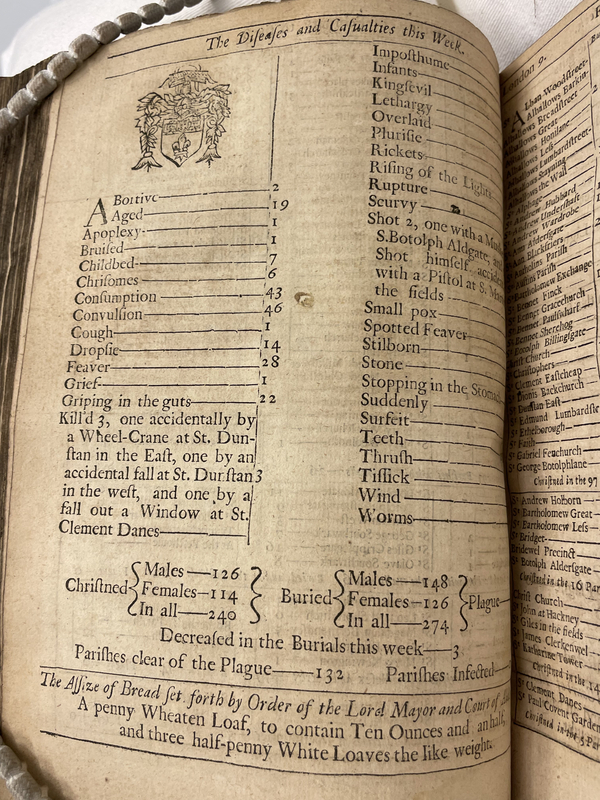 The Diſeaſes and Caſualties this Week.
ABortive 2
Aged 19
Apoplexy 1
Bruiſed 1
Childbed 7
Chriſomes 6
Conſumption 43
Convulſion 46
Cough 1
Dropſie 14
Feaver 28
Grief 1
Griping in the guts 22
Kill'd 3, one accidentally by
a Wheel-Crane at St. Dun-
ſtan in the Eaſt, one by an
accidental fall at St. Dunſtan 3
in the weſt, and one by a
fall out a Window at St.
Clement Danes
Impoſthume
Infants
Kingſevil
Lethargy
Overlaid
Pluriſie
Rickets
Riſing of the Lights
Rupture
Scurvy
Shot 2, one with a
S. Botolph Aldgate, and
Shot himſelf
with a Piſtol at S.
the fields
Small pox
Spotted Feaver
Stilborn
Stone
Stopping in the Stomach
Suddenly
Surfeit
Teeth
Thruſh
Tiſſick
Wind
Worms
Chriſtned Males 126 Females 114 In all 240
Buried Males 148 Females 126 In all 274 Plague
Decreaſed in the Burials this week 3
Pariſhes clear of the Plague 132 Pariſhes Infected
The Aſſize of Bread ſet forth by Order of the Lord Mayor and Court of
A penny Wheaten Loaf, to contain Ten Ounces and an half,
and three half-penny White Loaves the like weight.
London 9.
Alban Woodſtreet
Alhallows Barkin
Breadſtreet
Great
Honilane
Leſs
Lumbardſtreet
Staining
the Wall
Hubbard
Underſhaft
Wardrobe
Alderſgate
Blackfriers
Pariſh
Pariſh
Bartholomew Exchange
Bennet Finck
Gracechurch
Paulſharf
Bennet Sherehog
Botolph Billingſgate
Chriſt Church
Chriſtophers
Clement Eaſtcheap
Dionis Backchurch
Dunſtan Eaſt
Edmund Lumbardſtr
Ethelborough
Faith
Gabriel Fenchurch
George Botolphlane
Chriſtned in the 97
St Andrew Holborn
St Bartholomew Great
St Bartholomew Leſs
St Bridget
Bridewel Precinct
St Botolph Alderſgate
Chriſtned in the 16 Par
Chriſt Church
John at Hackney
Giles in the fields
James Clerkenwel
Katharine Tower
Chriſtned in the 14
St Clement Danes
St Paul Covent Garden
Chriſtned in the 5 Par